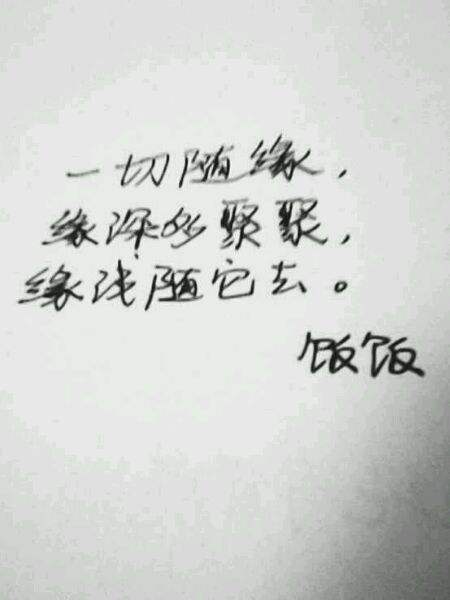 一切随缘，
缘深多聚聚，
缘浅随它去。
饭饭